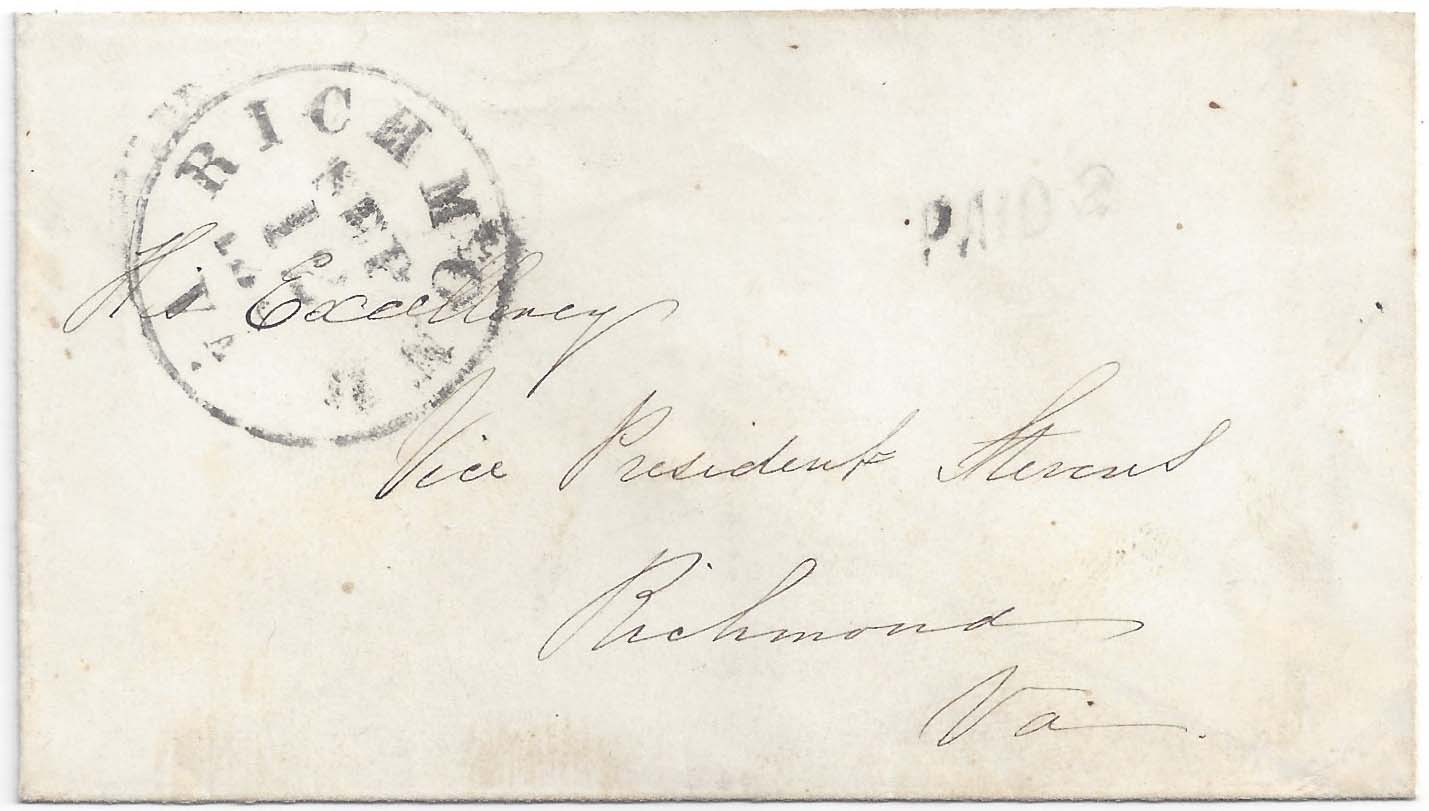 RICHMOND
VA.
PAID 2
His Excellency
Vice President Stevens
Richmond
Va.